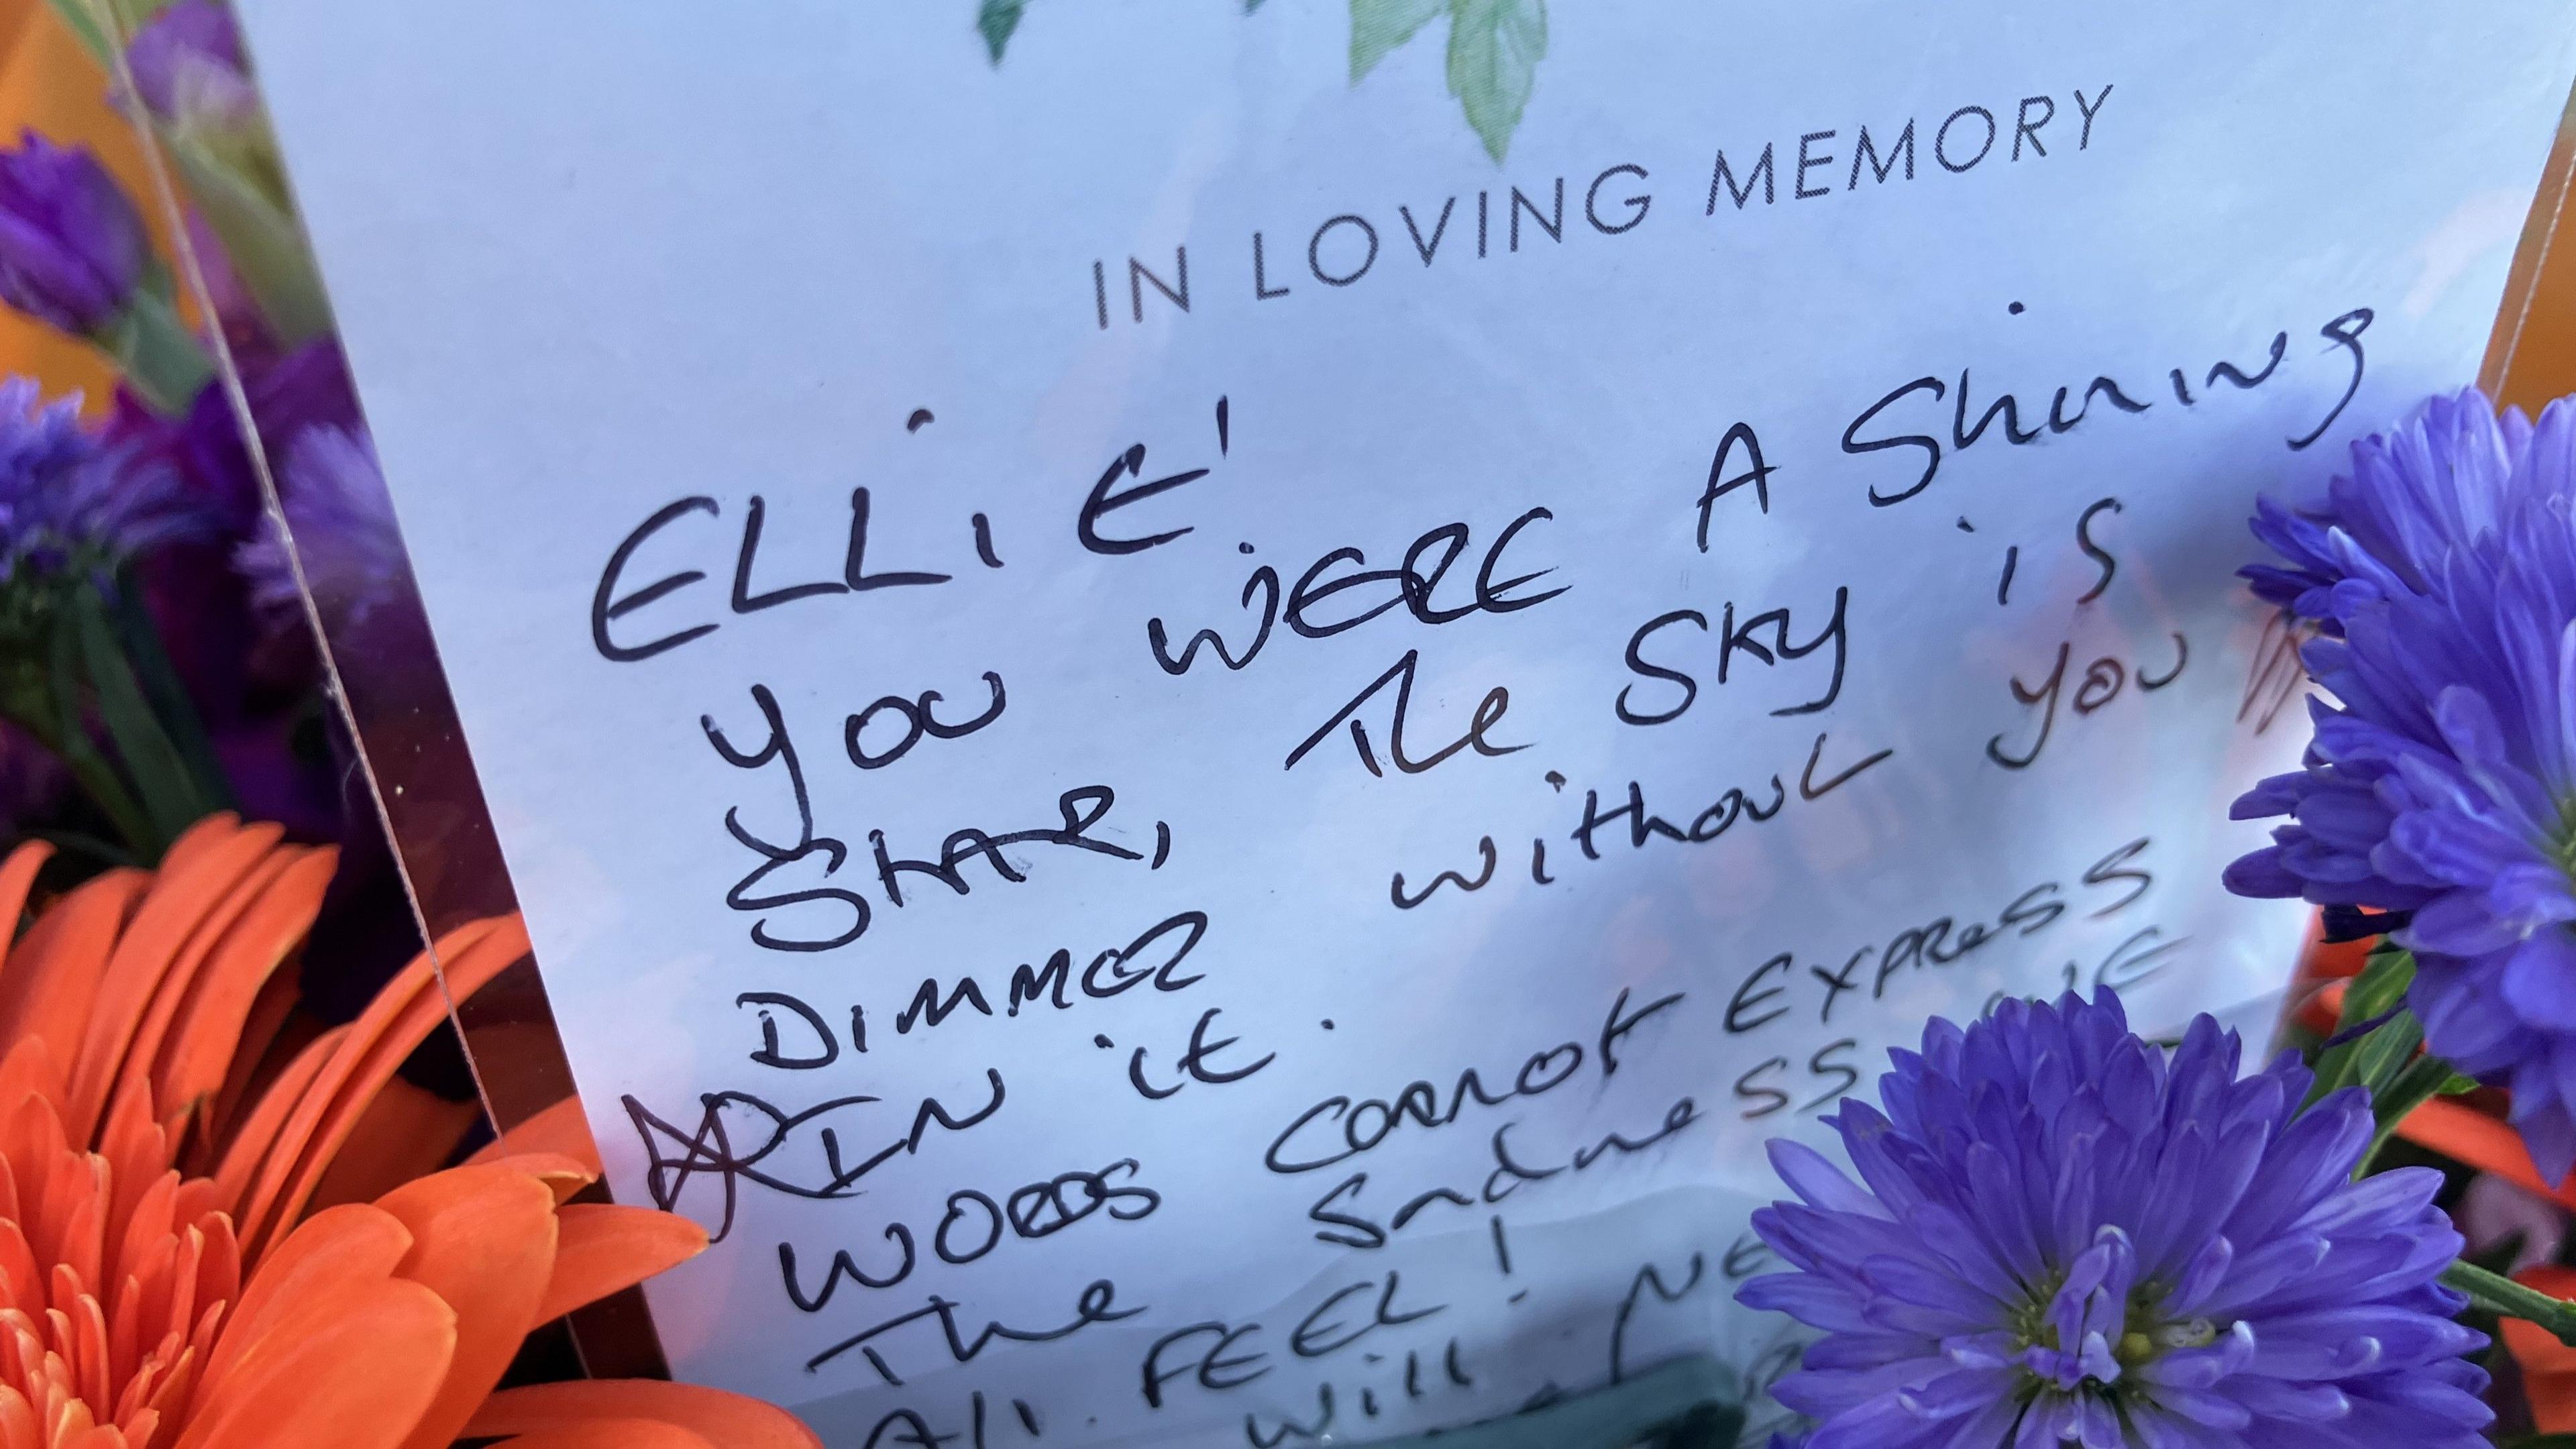 IN LOVING MEMORY
ELLiE'
you WERE A Shining
STAR, The SKy is
DIMMER without you
IN it.
WORDS CANNOT EXPRESS
The Sadness WE
All FEEL!
will NE